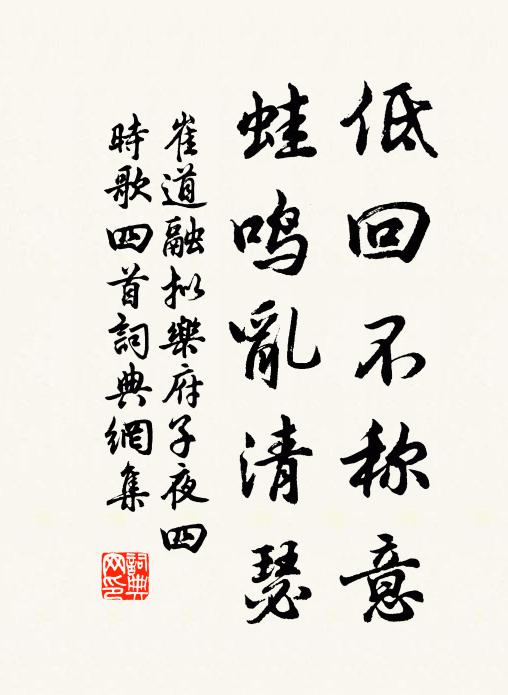 低回不称意
蛙鸣亂清瑟
崔道融拟樂府子夜四
時歌四首詞典網集
詞典
网印